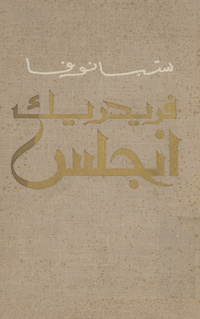 ستبانوفا
فريدريك
انجلس